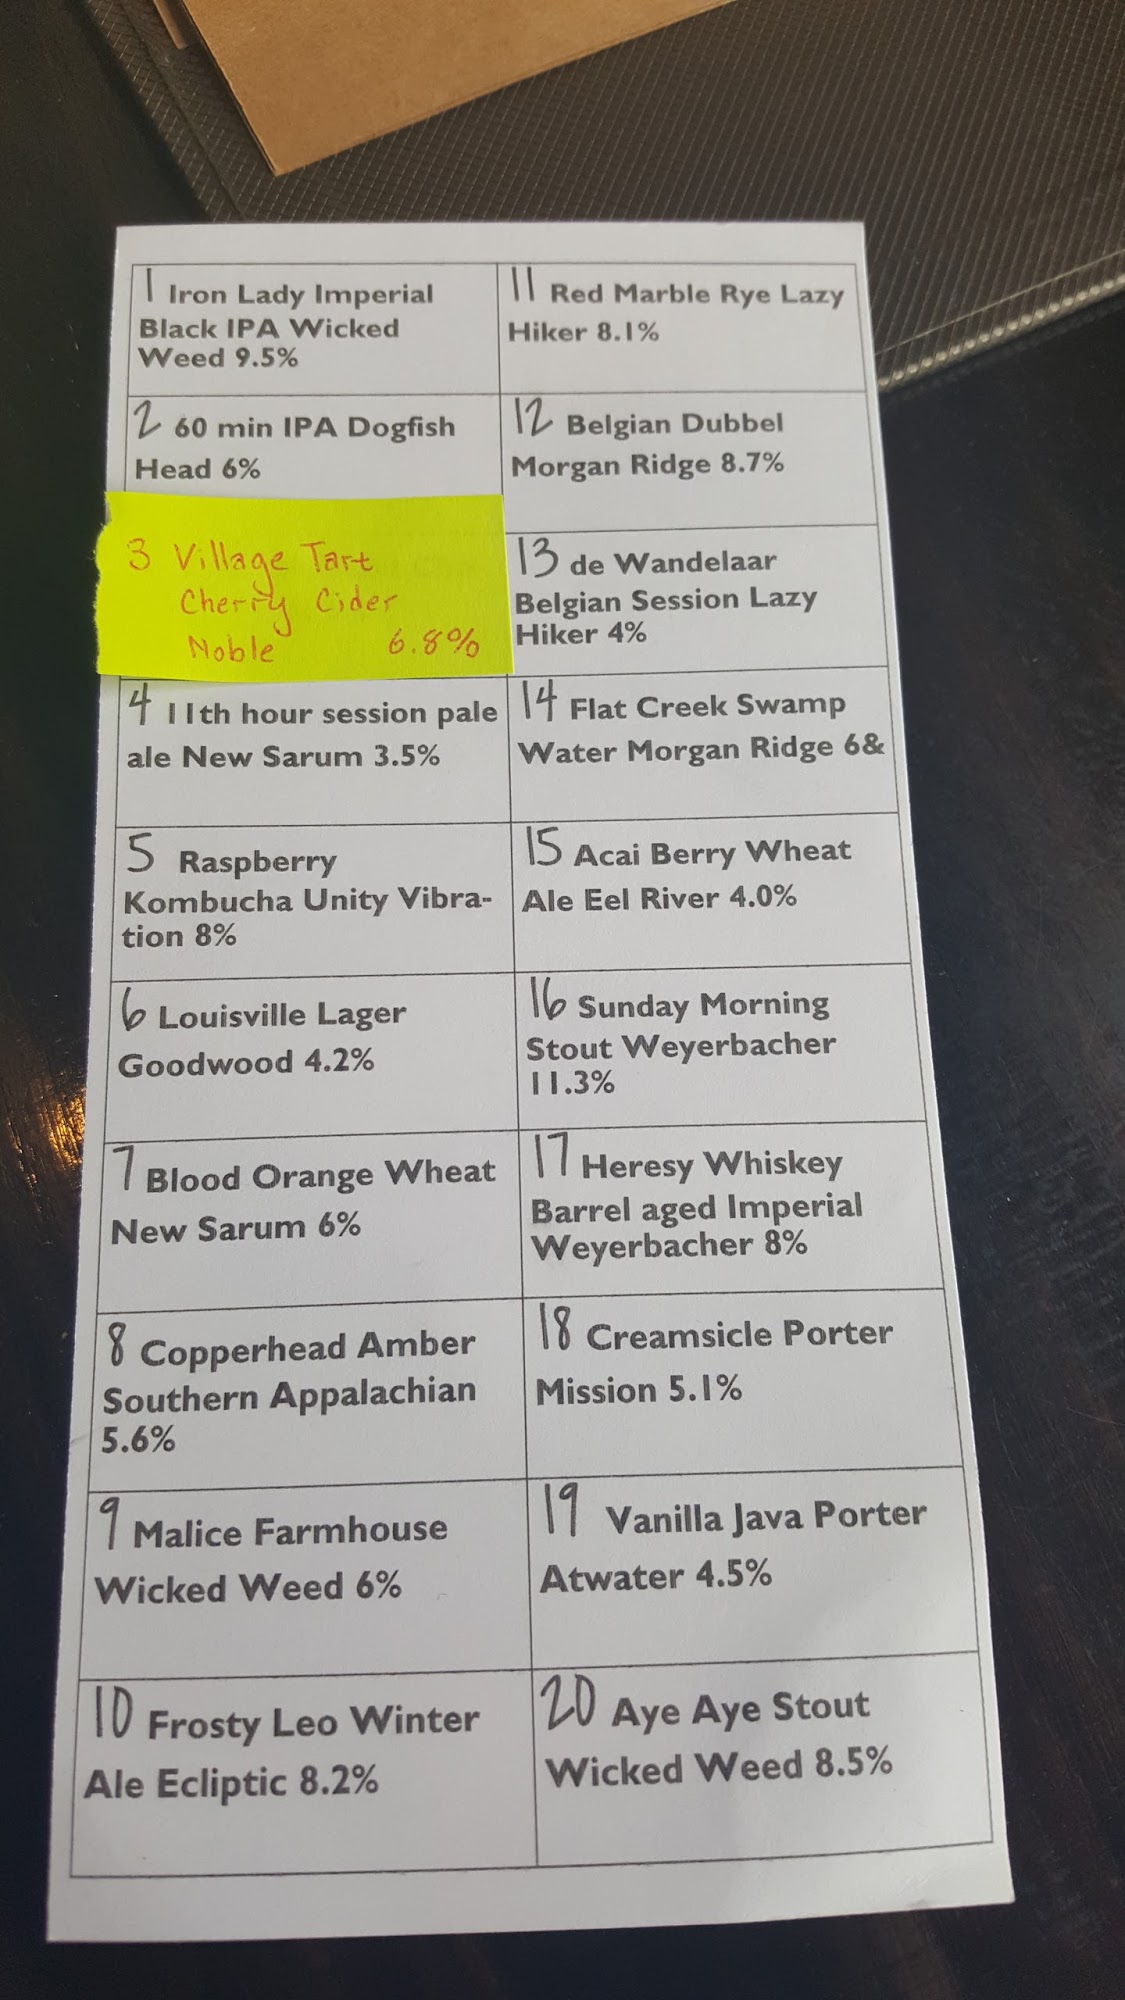 1 Iron Lady Imperial
Black IPA Wicked
Weed 9.5%
2 60 min IPA Dogfish
Head 6%
3 Village Tart
Cherry Cider
Noble 6.8%
4 11th hour session pale
ale New Sarum 3.5%
5 Raspberry
Kombucha Unity Vibra-
tion 8%
6 Louisville Lager
Goodwood 4.2%
7 Blood Orange Wheat
New Sarum 6%
8 Copperhead Amber
Southern Appalachian
5.6%
9 Malice Farmhouse
Wicked Weed 6%
10 Frosty Leo Winter
Ale Ecliptic 8.2%
11 Red Marble Rye Lazy
Hiker 8.1%
12 Belgian Dubbel
Morgan Ridge 8.7%
13 de Wandelaar
Belgian Session Lazy
Hiker 4%
14 Flat Creek Swamp
Water Morgan Ridge 6&
15 Acai Berry Wheat
Ale Eel River 4.0%
16 Sunday Morning
Stout Weyerbacher
11.3%
17 Heresy Whiskey
Barrel aged Imperial
Weyerbacher 8%
18 Creamsicle Porter
Mission 5.1%
19 Vanilla Java Porter
Atwater 4.5%
20 Aye Aye Stout
Wicked Weed 8.5%